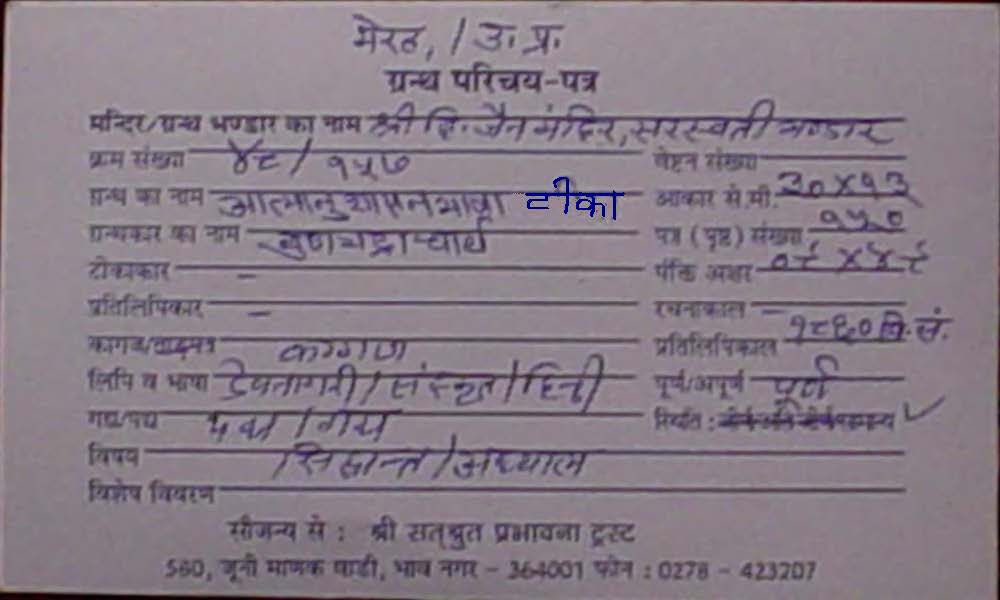 मेरठ, / उ. प्र.
ग्रन्थ परिचय-पत्र
मन्दिर/ग्रन्थ भण्डार का नाम श्री दि. जैन मंदिर, सरस्वती भण्डार
क्रम संख्या ४८ / १५७ वेष्टन संख्या
ग्रन्थ का नाम आत्मानुशासन भाषा टीका आकार से.मी. ३० X १३
ग्रन्थकार का नाम गुणभद्राचार्य पत्र (पृष्ट) संख्या १५०
टीकाकार – पंक्ति अक्षर ०९ X ४९
प्रतिलिपिकार – रचनाकाल –
कागज/ताड़पत्र कागज प्रतिलिपिकाल १८६० वि. सं.
लिपि व भाषा देवनागरी / संस्कृत / हिन्दी पूर्ण/अपूर्ण पूर्ण
गद्य/पद्य पद्य / गद्य स्थिति :
विषय सिद्धान्त / अध्यात्म
विशेष विवरण
सौजन्य से : श्री सत्श्रुत प्रभावना ट्रस्ट
580, जूनी माणक वाडी, भाव नगर - 364001 फोन : 0278 - 423207